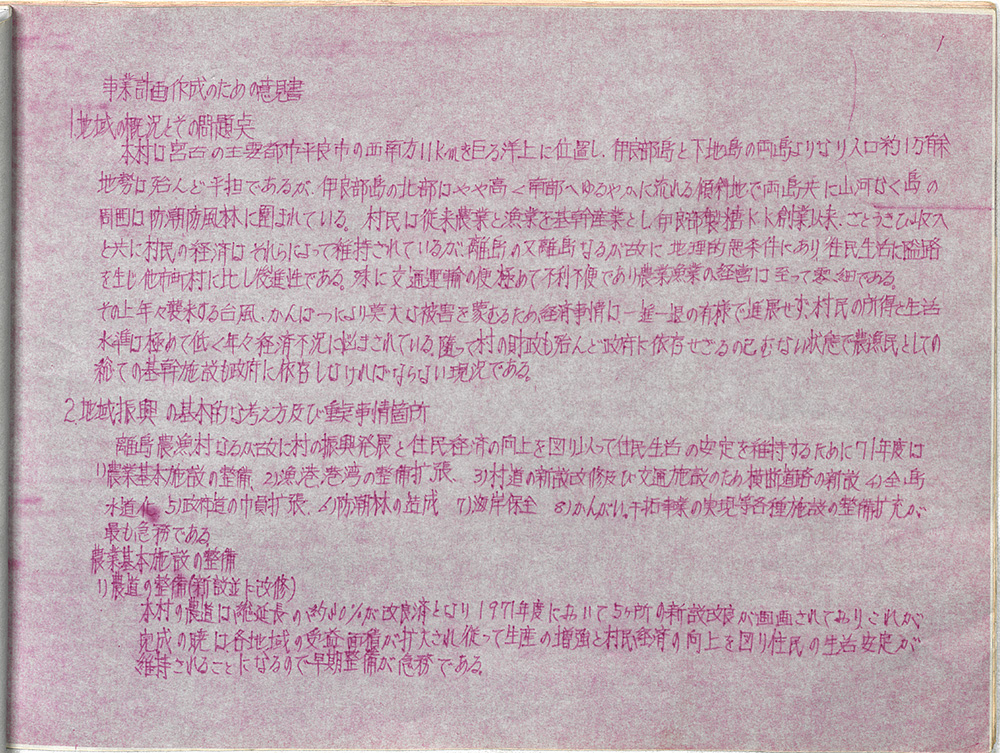 1
事業計画作成のための意見書
1.地域の概況とその問題点
本村は宮古の主要都市平良市の西南方11kmを巨る洋上に位置し、伊良部島と下地島の両島よりなり人口約1万有余
地勢は殆んど平担であるが、伊良部島の北部はやや高く南部へゆるやかに流れる傾斜地で両島共に山河なく島の
周囲は防潮防風林に囲まれている。村民は従来農業と漁業を基幹産業とし伊良部製糖KK創業以来、さとうきび収入
と共に村民の経済はそれらによって維持されているが、離島の又離島なるが故に地理的悪条件にあり住民生活に隘路
を生じ他市町村に比し後進性である。殊に交通運輸の便極めて不利不便であり農業漁業の経営は至って零細である。
その上年々襲来する台風、かんばつにより莫大な被害を蒙むるため経済事情は一進一退の有様で進展せず、村民の所得と生活
水準は極めて低く年々経済不況に悩まされている。随って村の財政も殆んど政府に依存せざるの已むない状態で農漁民としての
総ての基幹施設も政府に依存しなければならない現況である。
2.地域振興の基本的な考え方及び重点事情箇所
離島農漁村なるが故に村の振興発展と住民経済の向上を図り以って住民生活の安定を維持するために71年度は
1)農業基本施設の整備 2)漁港、港湾の整備扩張 3)村道の新設改修及び交通施設のため横断道路の新設 4)全島
水道化 5)政府道の巾員扩張 6)防潮林の造成 7)海岸保全 8)かんがい、干拓事業の実現等各種施設の整備扩充が
最も急務である。
農業基本施設の整備
1)農道の整備(新設並に改修)
本村の農道は総延長の約40%が改良済となり1971年度において5ヶ所の新設改良が画画されておりこれが
完成の暁は各地域の受益面積が扩大され従って生産の増強と村民経済の向上を図り住民の生活安定が
維持されることになるので早期整備が急務である。